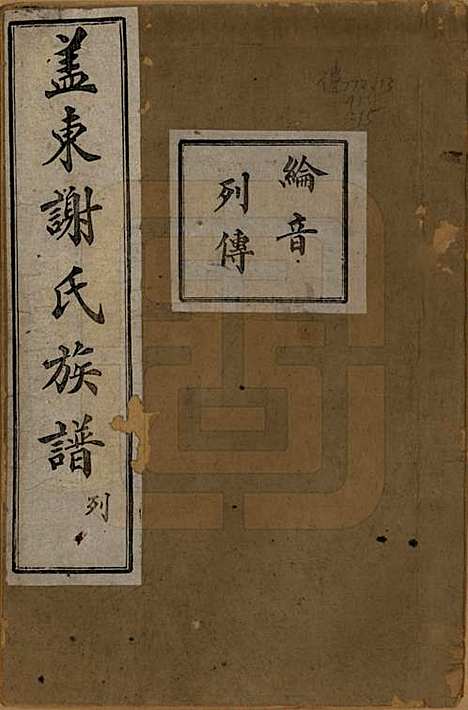 盖東謝氏族譜
列
綸音
列傳